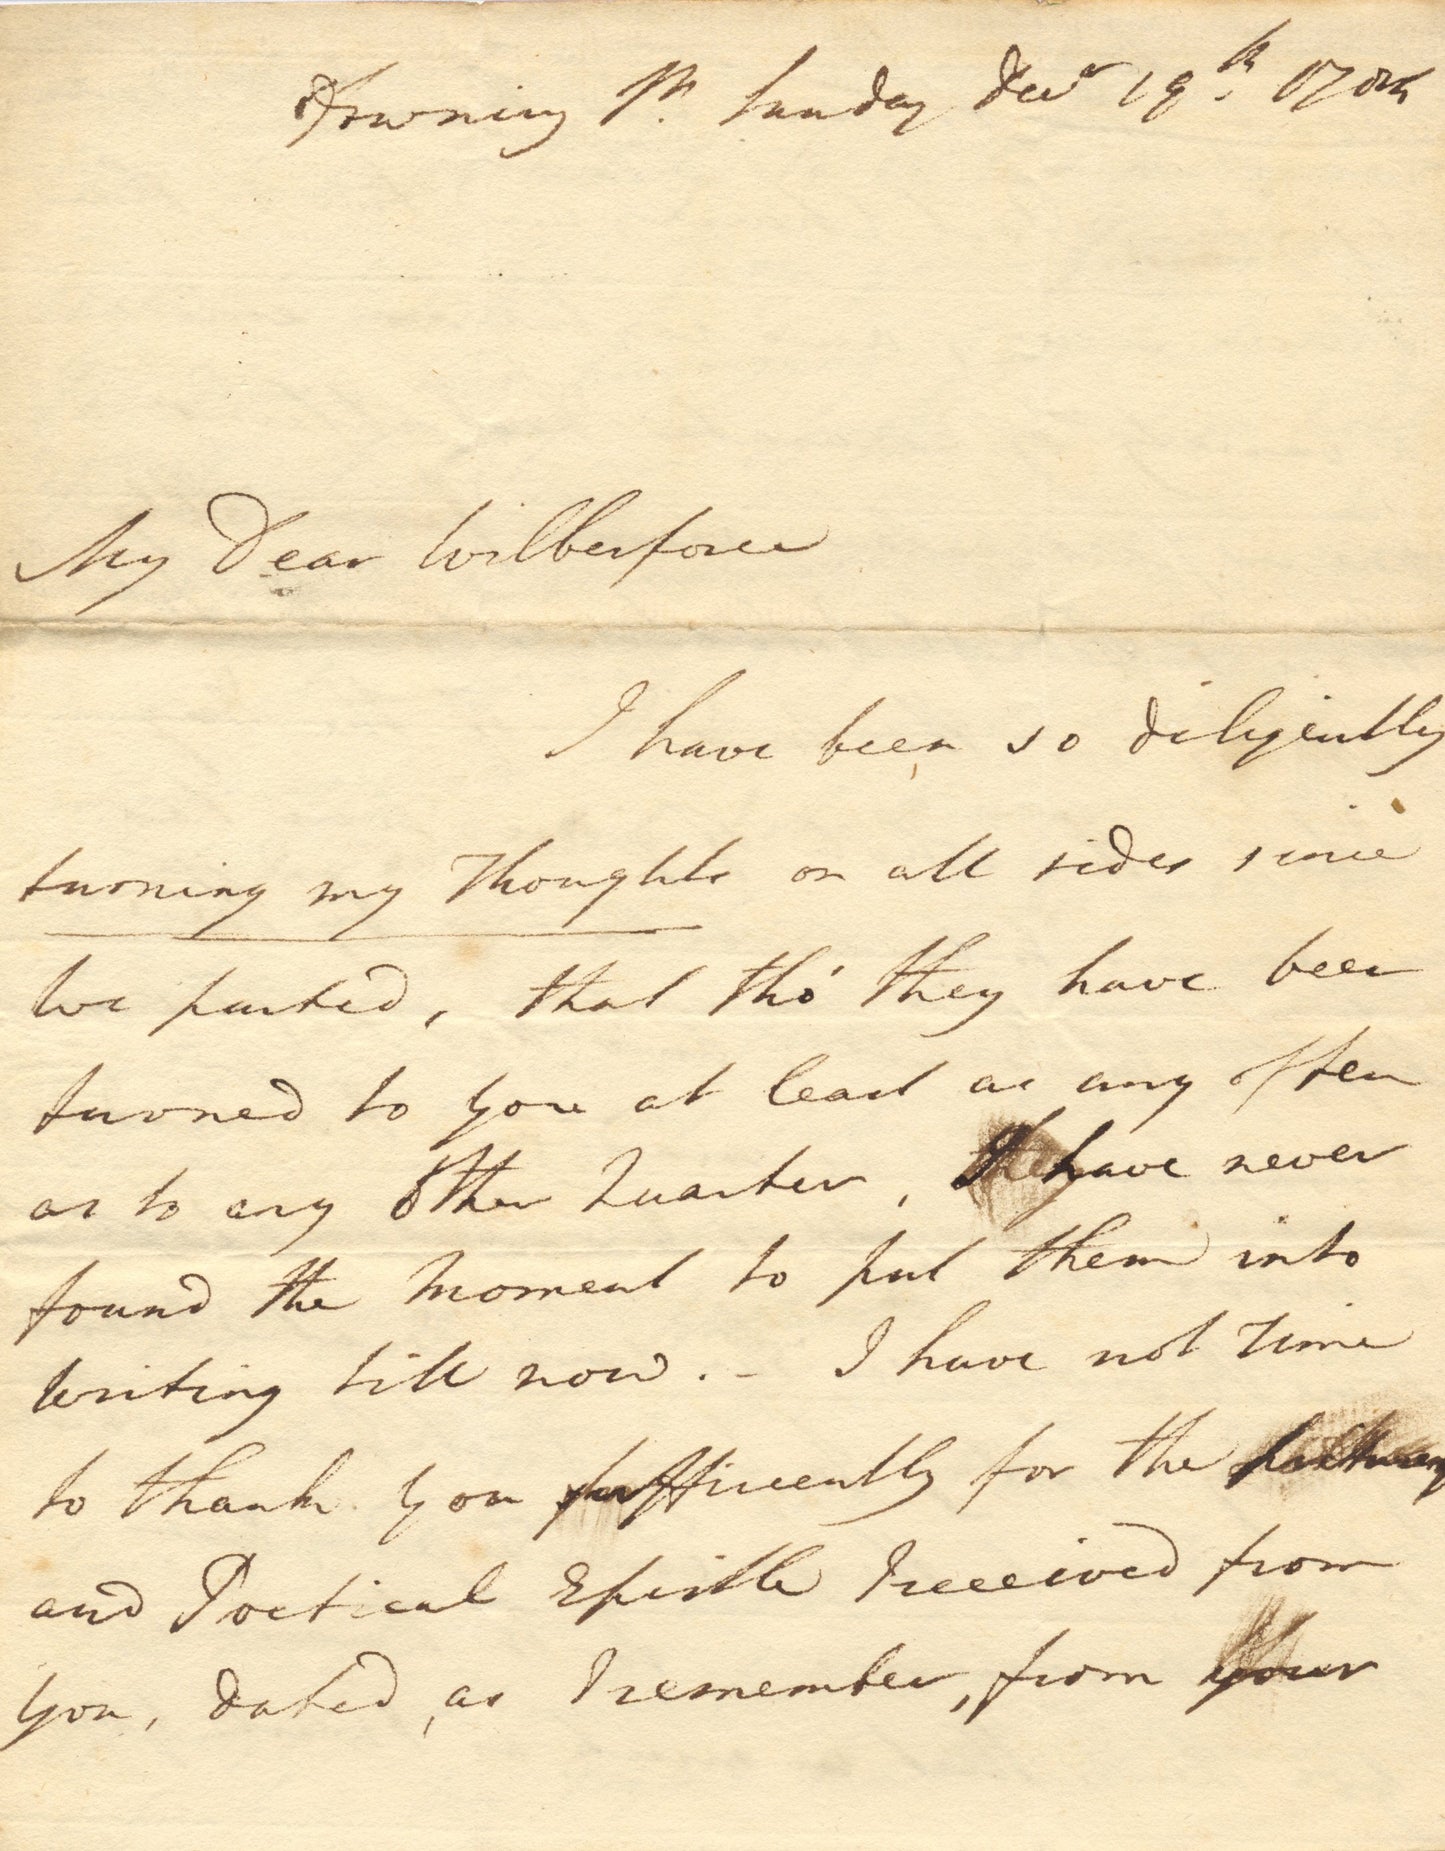 Downing St. Sunday Decr 19th.
My Dear Wilberforce
I have been so diligently
turning my Thoughts on all sides since
we parted, that tho' they have been
turned to you at least as any often
as to any Other Quarter, they have never
found the Moment to put them into
writing till now. - I have not Time
to thank you sufficiently for the
and Poetical Epistle I received from
you, dated, as I remember, from your